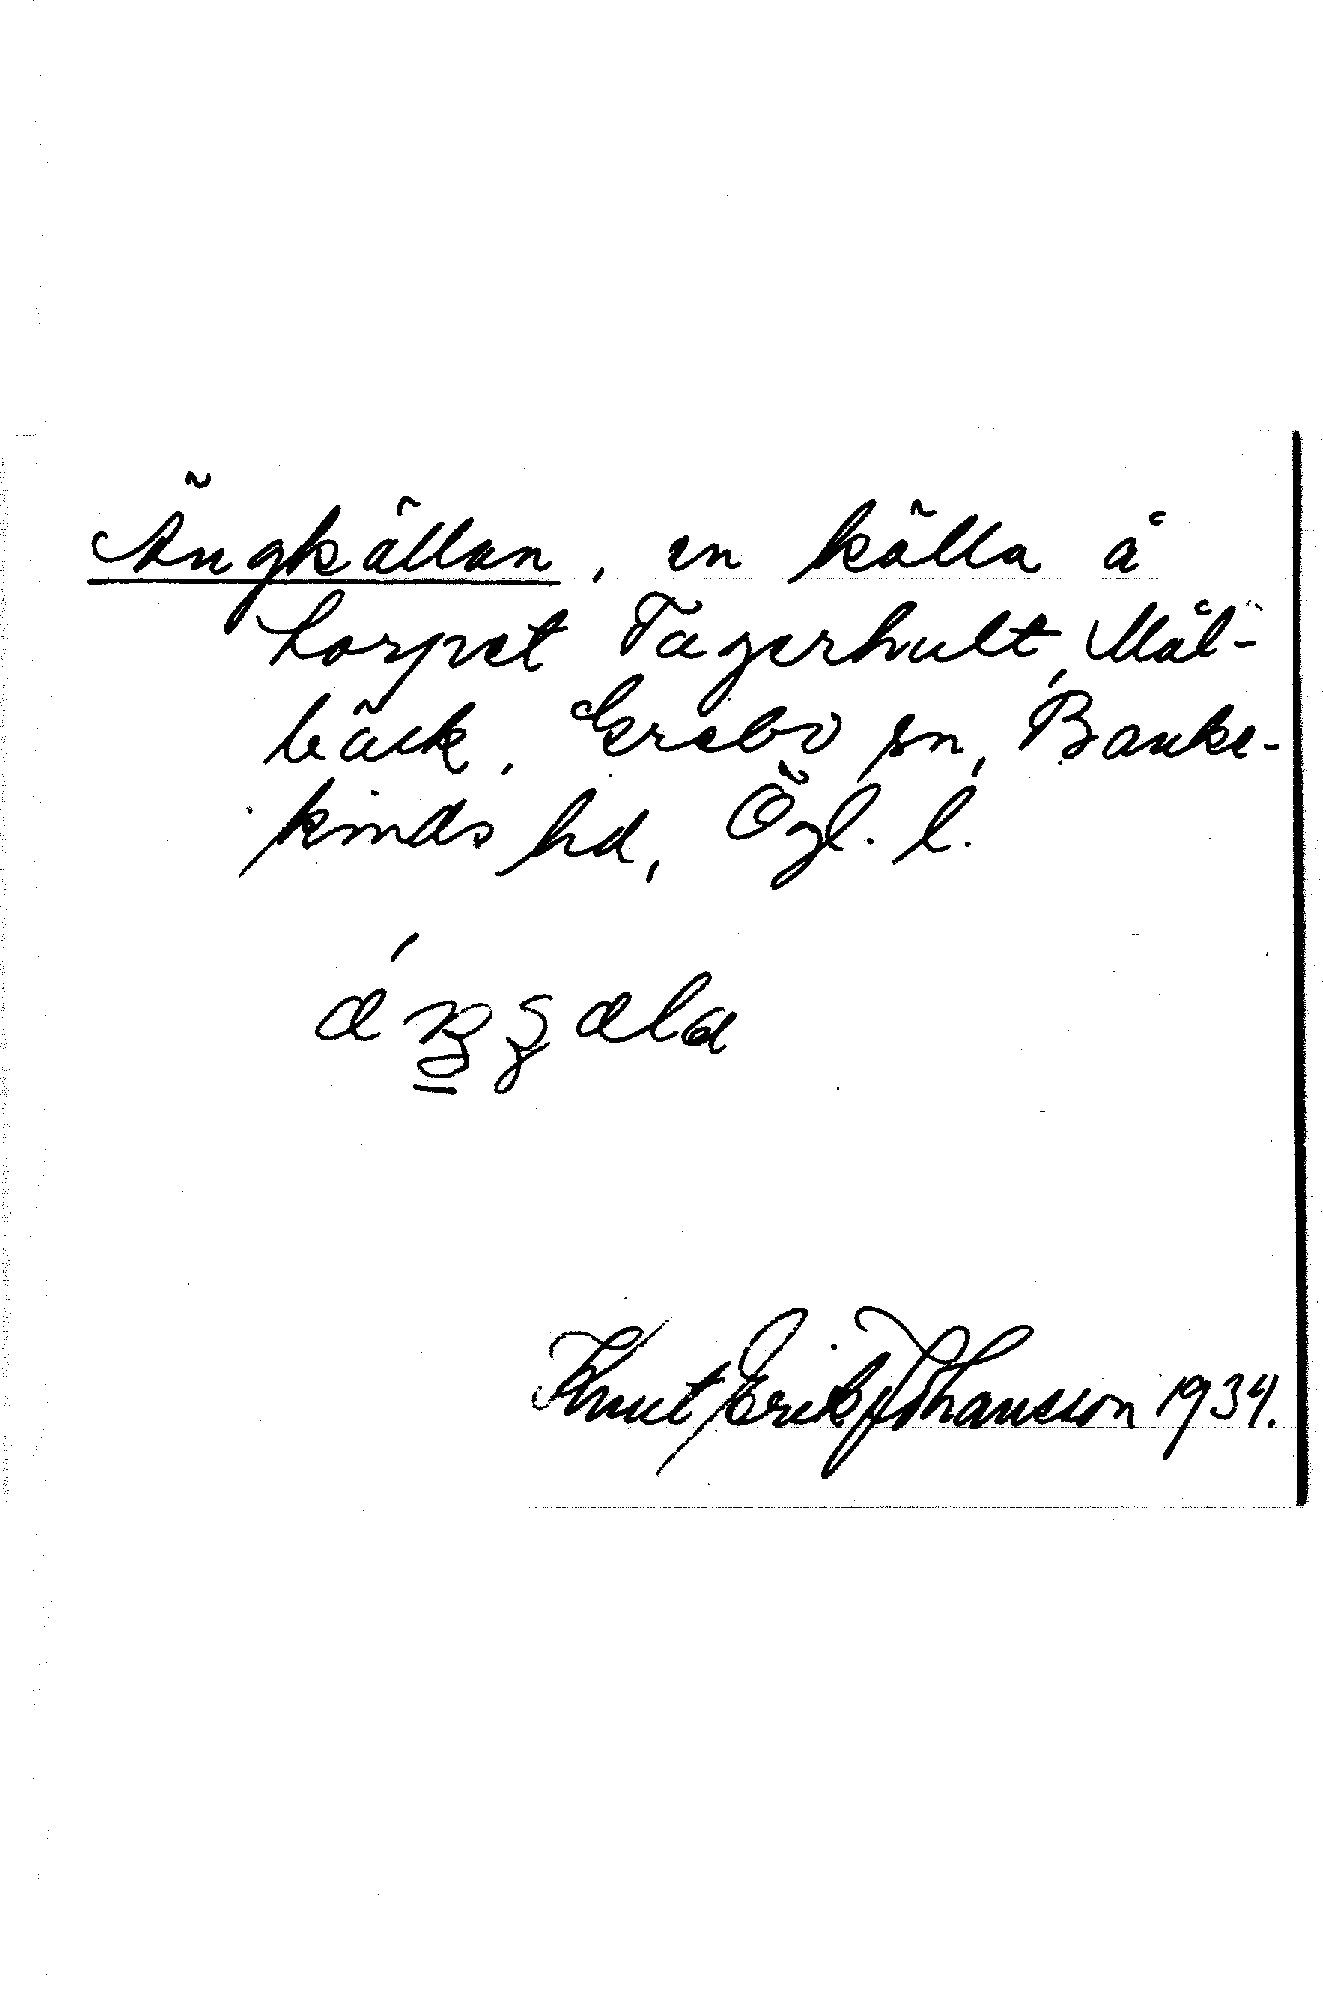 Ängkällan, en källa å
torpet Tagerhult, Mål-
bäck, Grebo sn, Banke-
kinds hd, Ögl. l.
Knut Erik Johansson 1934.